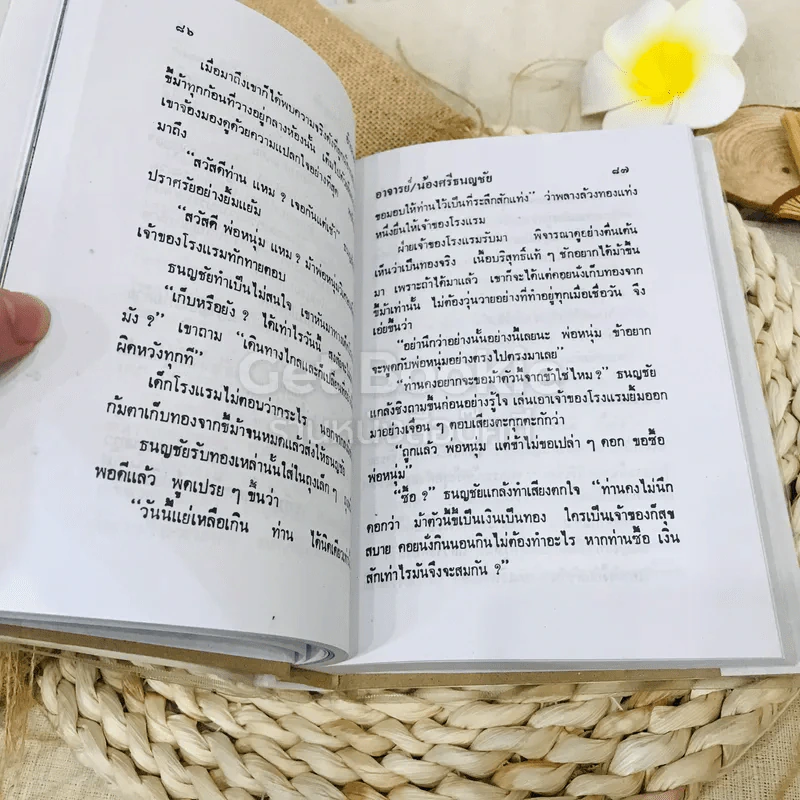 ๘๖
เมื่อมาถึงเขาก็ได้พบความจริงดังที่
ขี้ม้าทุกก้อนที่วางอยู่กลางห้องนั้น
เขาจ้องมองดูด้วยความแปลกใจอย่างที่สุด
มาถึง
“สวัสดีท่าน แหม ? เจอกันแต่เช้า”
ปราศรัยอย่างยิ้มแย้ม
“สวัสดี พ่อหนุ่ม แหม ? ม้าพ่อหนุ่ม
เจ้าของโรงแรมทักทายตอบ
ธนญชัยทำเป็นไม่สนใจ เขาหันมาทาง
“เก็บหรือยัง ? ได้เท่าไรวันนี้
มั้ง ?” เขาถาม “เดินทางไกลและ
ผิดหวังทุกที”
เด็กโรงแรมไม่ตอบว่ากระไร นอกจาก
ก้มตาเก็บทองจากขี้ม้าจนหมดแล้วส่งให้ธนญชัย
ธนญชัยรับทองเหล่านั้นใส่ในถุงเล็ก ๆ
พอดีแล้ว พูดเปรย ๆ ขึ้นว่า
“วันนี้แย่เหลือเกิน ท่าน ได้นิดเดียว
อาจารย์/น้องศรีธนญชัย
๘๗
ขอมอบให้ท่านไว้เป็นที่ระลึกสักแท่ง” ว่าพลางล้วงทองแท่ง
หนึ่งยื่นให้เจ้าของโรงแรม
ฝ่ายเจ้าของโรงแรมรับมา พิจารณาดูอย่างตื่นเต้น
เห็นว่าเป็นทองจริง เนื้อบริสุทธิ์แท้ ๆ ชักอยากได้ม้าขึ้น
มา เพราะถ้าได้มาแล้ว เขาก็จะได้แต่คอยนั่งเก็บทองจาก
ขี้ม้าเท่านั้น ไม่ต้องวุ่นวายอย่างที่ทำอยู่ทุกเมื่อเชื่อวัน จึง
เอ่ยขึ้นว่า
“อย่านึกว่าอย่างนั้นอย่างนี้เลยนะ พ่อหนุ่ม ข้าอยาก
จะพูดกับพ่อหนุ่มอย่างตรงไปตรงมาเลย”
“ท่านคงอยากจะขอม้าตัวนี้จากข้าใช่ไหม ?” ธนญชัย
แกล้งชิงถามขึ้นก่อนอย่างรู้ใจ เล่นเอาเจ้าของโรงแรมยิ้มออก
มาอย่างเจื่อน ๆ ตอบเสียงตะกุกตะกักว่า
“ถูกแล้ว พ่อหนุ่ม แต่ข้าไม่ขอเปล่า ๆ ดอก ขอซื้อ
พ่อหนุ่ม”
“ซื้อ ?” ธนญชัยแกล้งทำเสียงตกใจ “ท่านคงไม่นึก
ดอกว่า ม้าตัวนี้ขี้เป็นเงินเป็นทอง ใครเป็นเจ้าของก็สุข
สบาย คอยนั่งกินนอนกินไม่ต้องทำอะไร หากท่านซื้อ เงิน
สักเท่าไรมันจึงจะสมกัน ?”